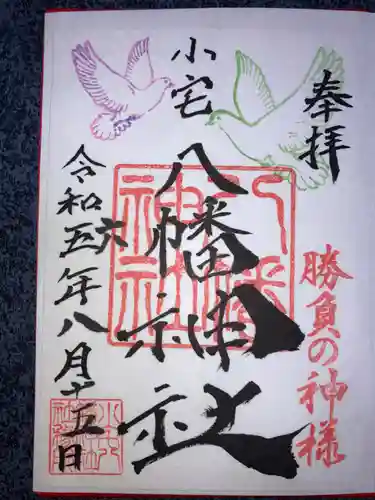 奉拝
勝負の神様
小宅
八幡神社
八幡
神社
令和五年八月十五日
六